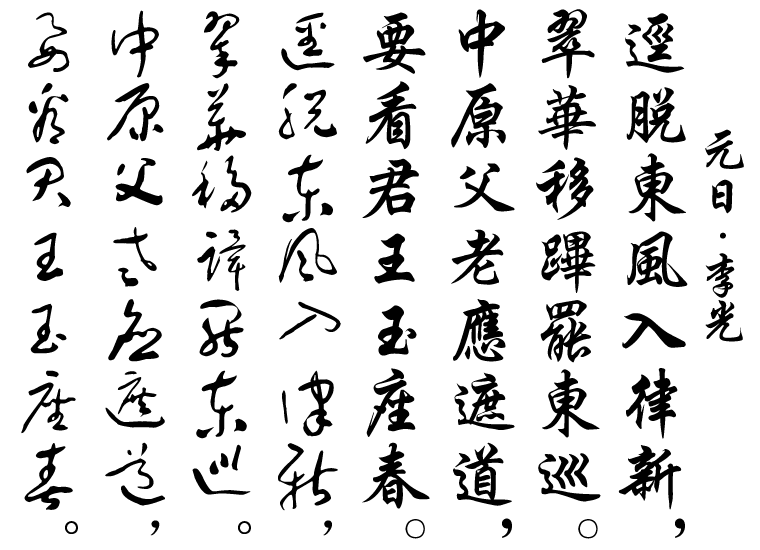 元日·李光
逕脫東風入律新，
翠華移蹕罷東巡。
中原父老應遮道，
要看君王玉座春。
逕脫東風入律新，
翠華移蹕罷東巡。
中原父老應遮道，
要看君王玉座春。